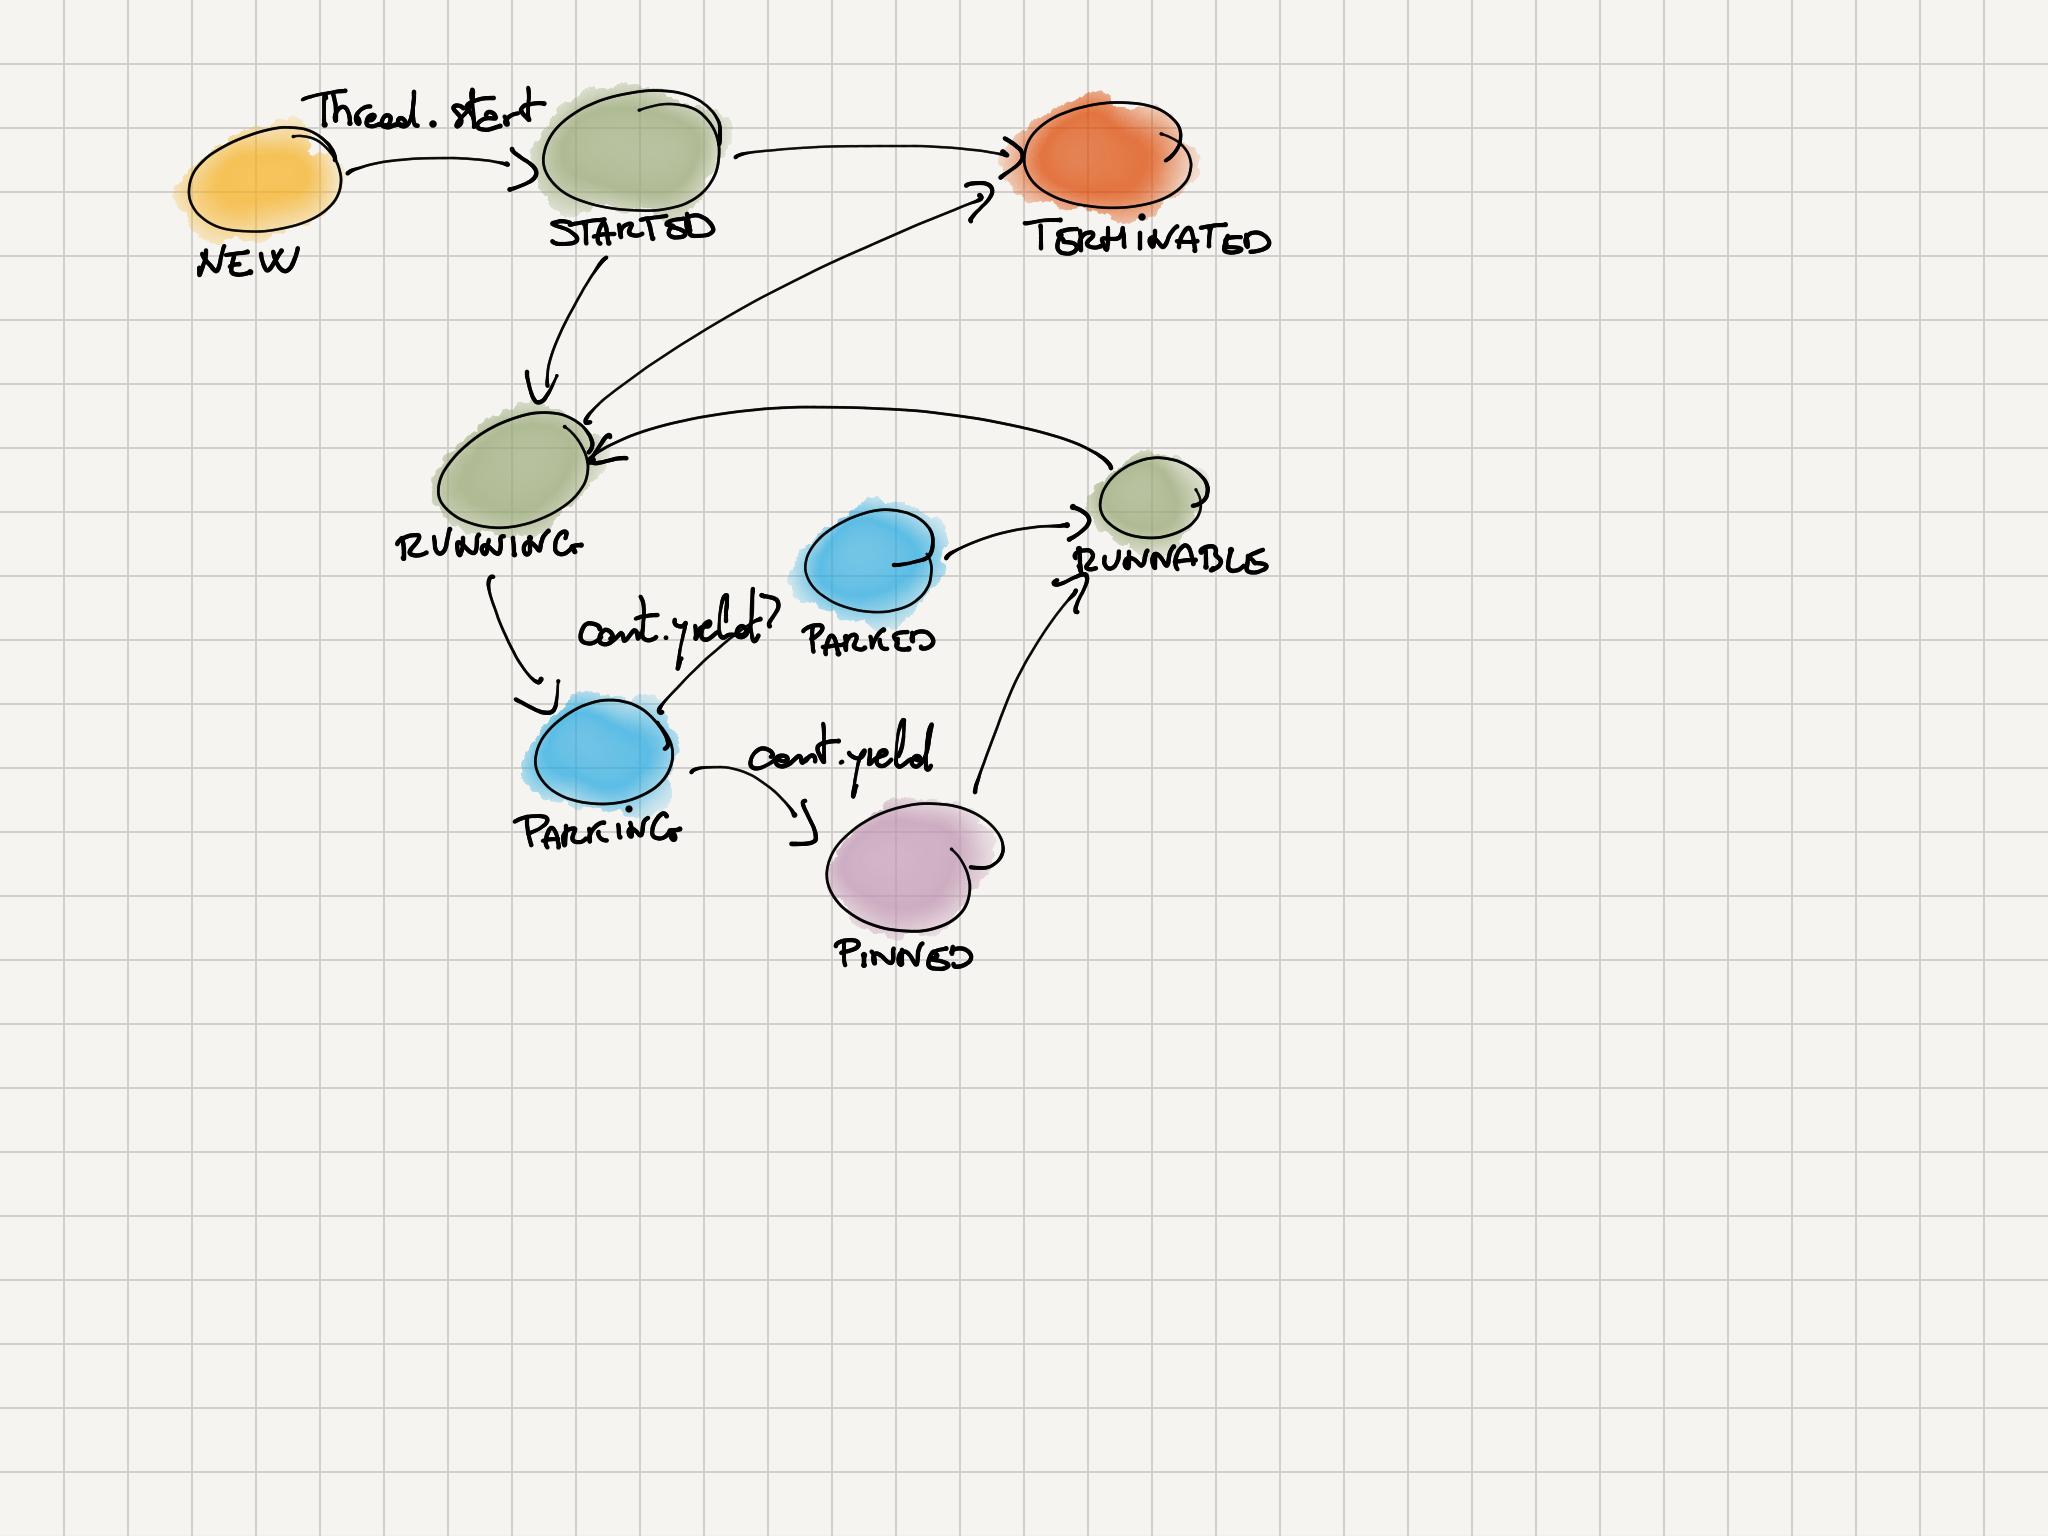 Thread.start
NEW
STARTED
TERMINATED
RUNNING
RUNNABLE
cont.yield
PARKED
cont.yield
PARKING
PINNED